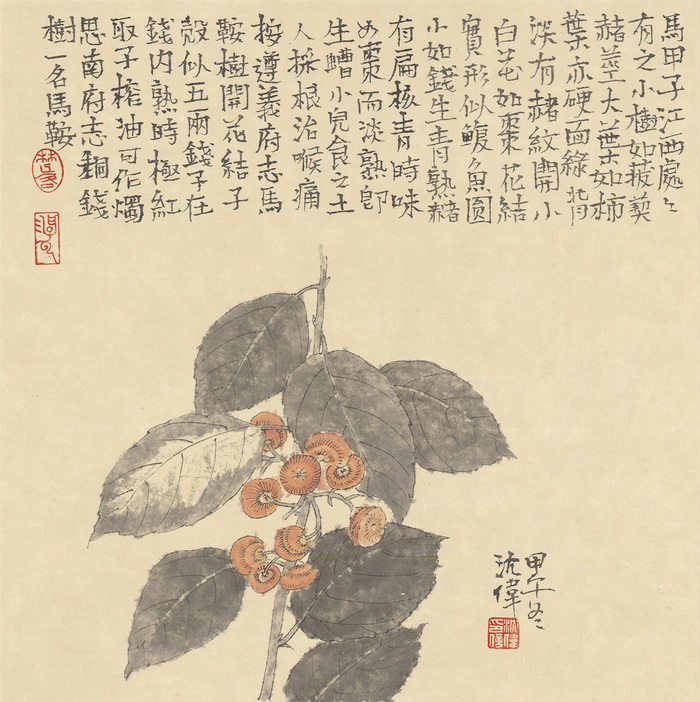 馬甲子江西處々
有之小樹如菝葜
赭莖大葉如柿
葉亦硬面綠背
淡有赭紋開小
白花如棗花結
實形似鰒魚圓
小如錢生青熟赭
有扁核青時味
如棗而淡熟即
生螬小兒食之土
人採根治喉痛
按遵義府志馬
鞍樹開花結子
殼似五兩錢子在
錢內熟時極紅
取子榨油可作燭
思南府志銅錢
樹一名馬鞍
甲午冬
沈偉
沈偉